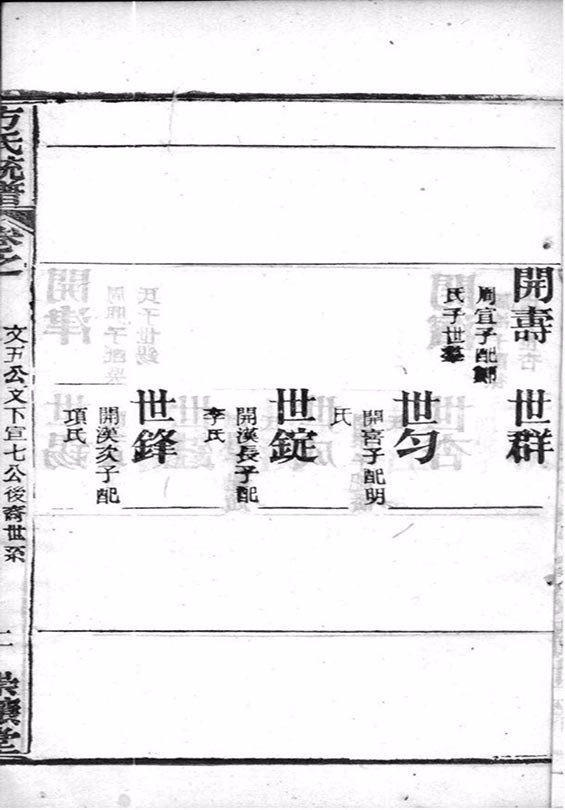 開壽
周宜子配鄭
氏子世羣
世群
世勻
開宮子配明
氏
世錠
開漢長子配
李氏
世鋒
開漢次子配
項氏
方氏統譜
卷之一
文五公文下宣七公後裔世系
二
崇讓堂